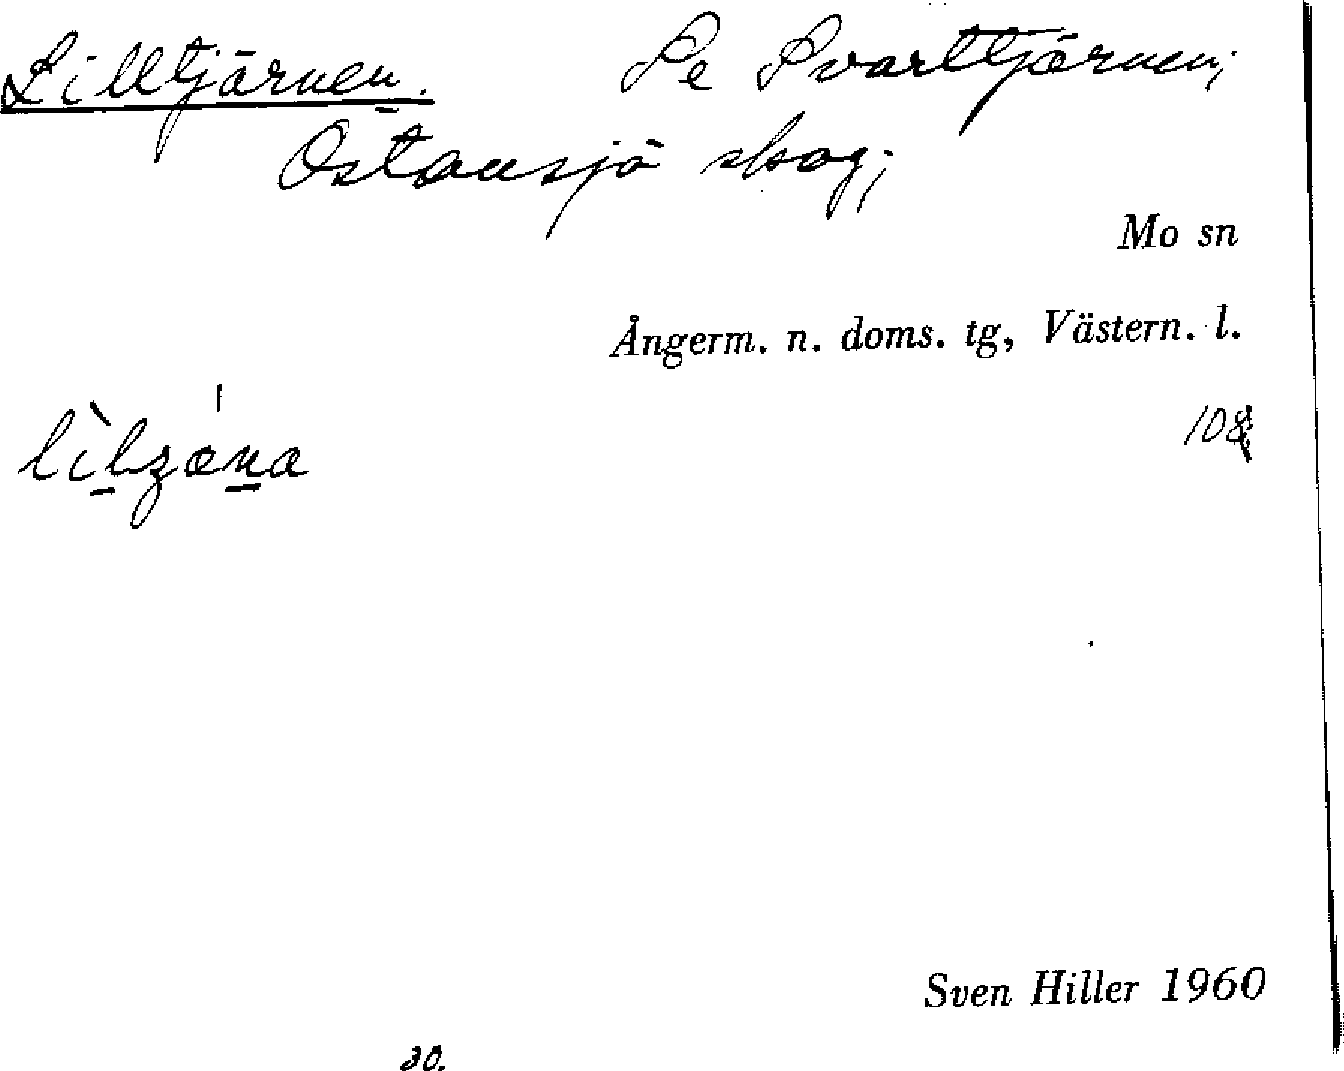 Lilltjärnen. Se Svarttjärnen;
Östansjö skog;
Mo sn
Ångerm. n. doms. tg, Västern. l.
108
Sven Hiller 1960
30.